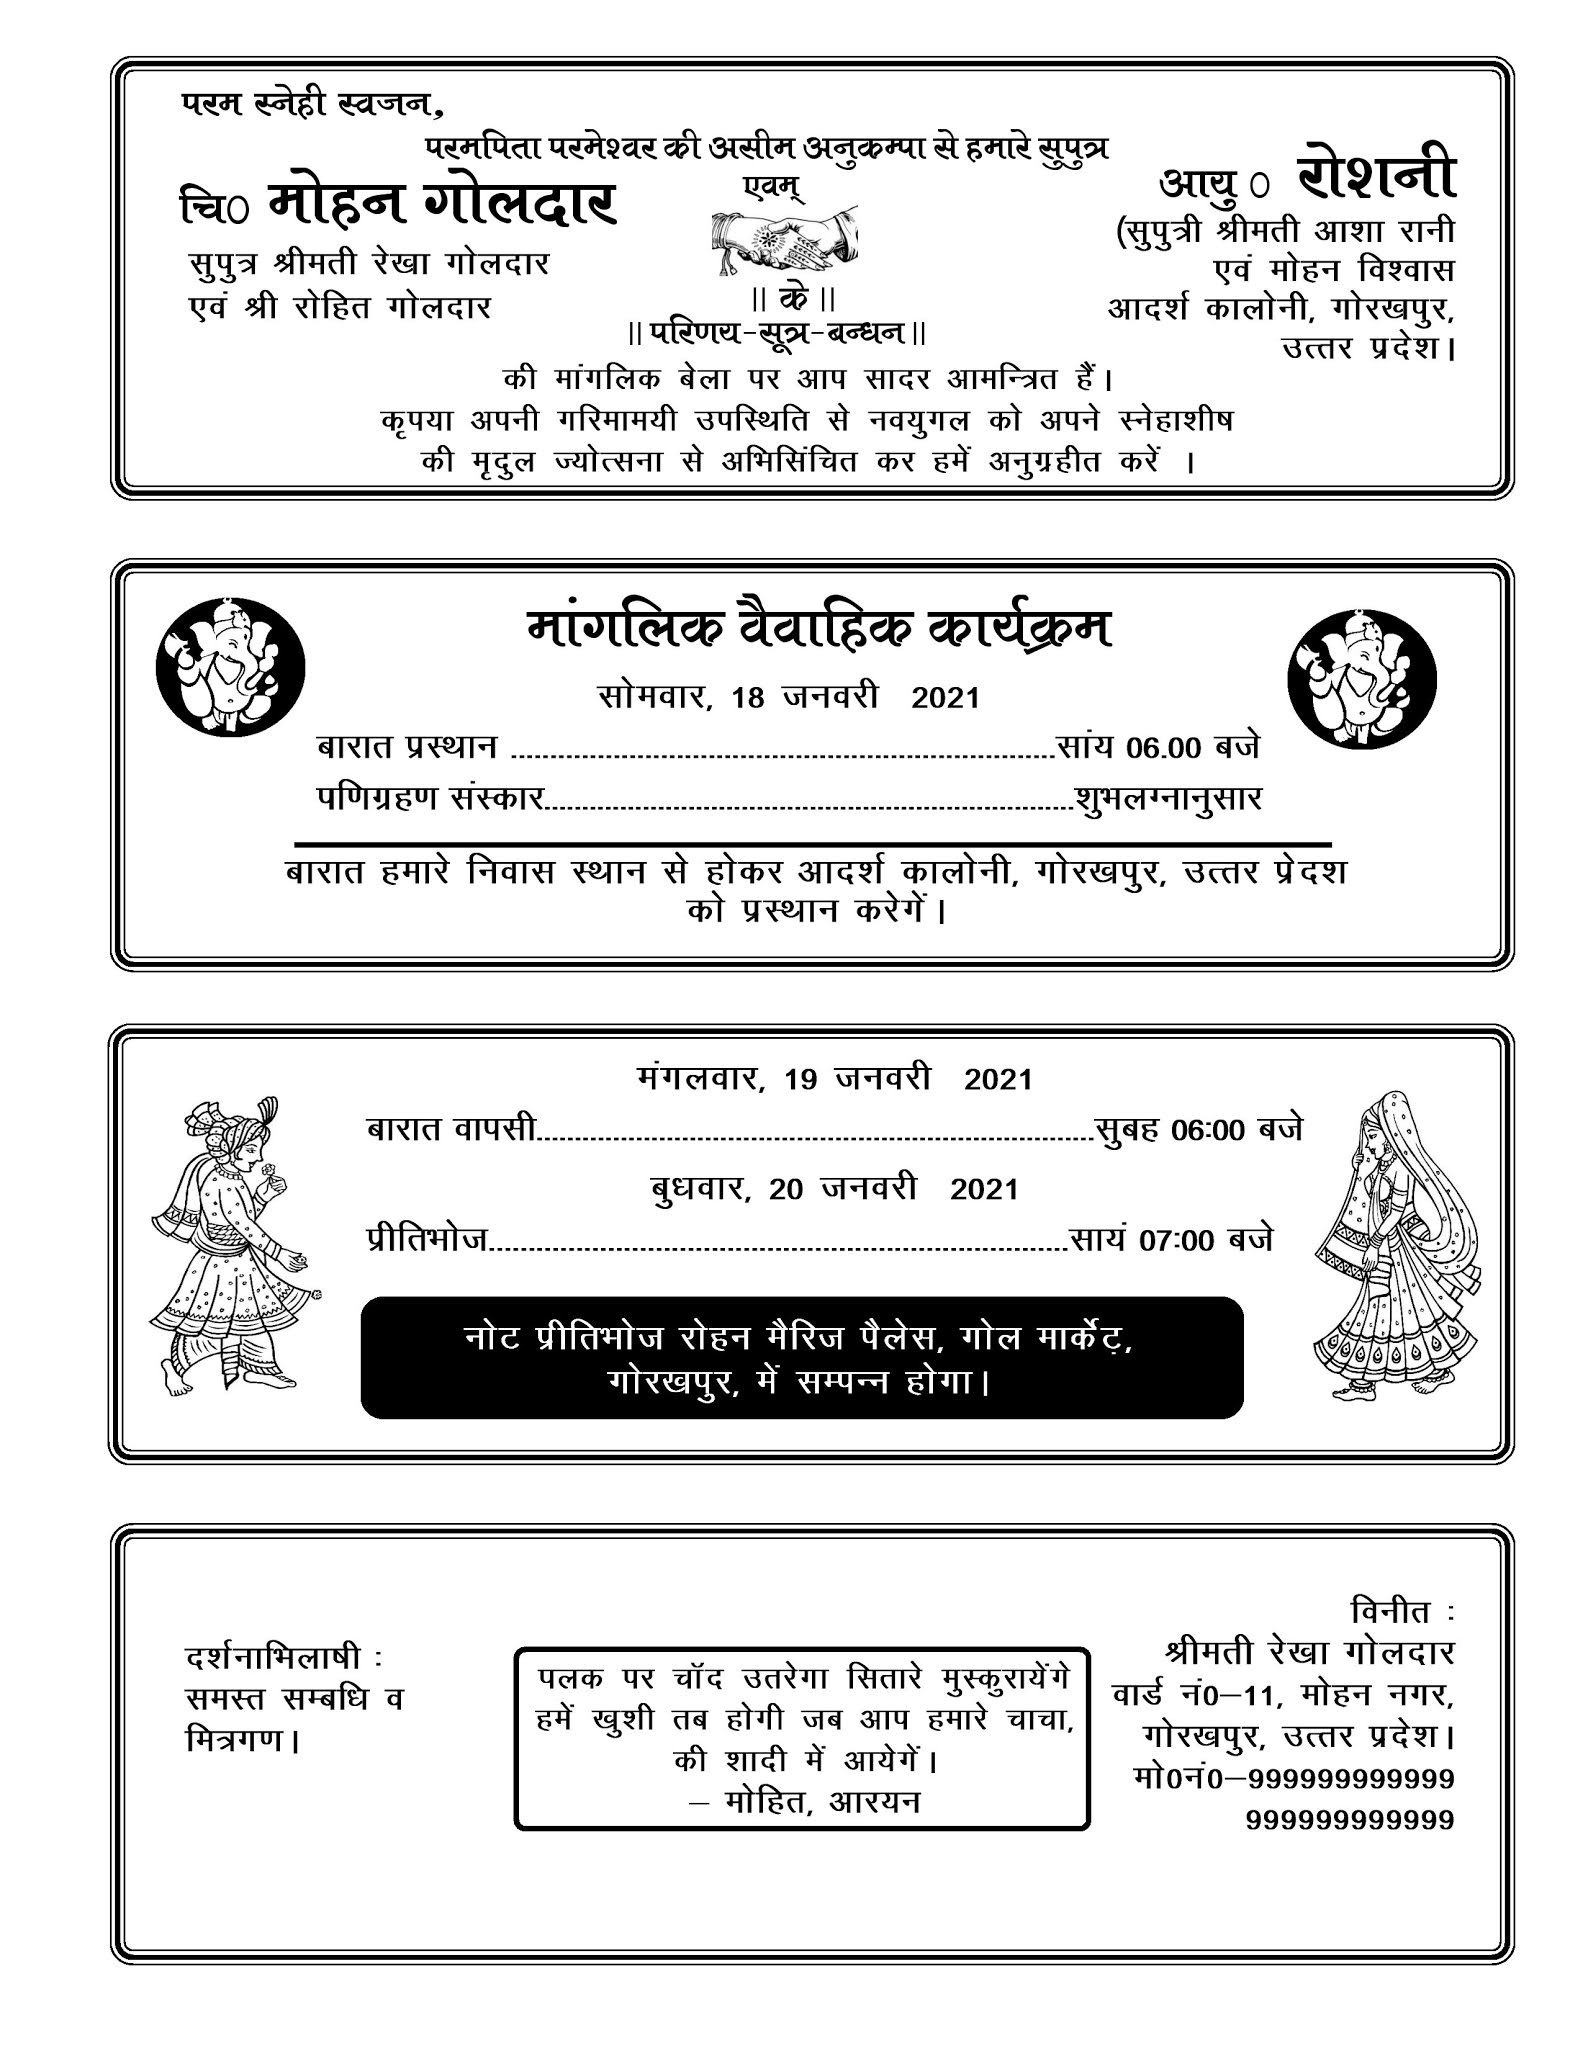 परम स्नेही स्वजन,
परमपिता परमेश्वर की असीम अनुकम्पा से हमारे सुपुत्र
चि0 मोहन गोलदार
सुपुत्र श्रीमती रेखा गोलदार
एवं श्री रोहित गोलदार
एवम्
आयु 0 रोशनी
(सुपुत्री श्रीमती आशा रानी
एवं मोहन विश्वास
आदर्श कालोनी, गोरखपुर,
उत्तर प्रदेश।
|| के ||
|| परिणय-सूत्र-बन्धन ||
की मांगलिक बेला पर आप सादर आमन्त्रित हैं।
कृपया अपनी गरिमामयी उपस्थिति से नवयुगल को अपने स्नेहाशीष
की मृदुल ज्योत्सना से अभिसिंचित कर हमें अनुग्रहीत करें ।
मांगलिक वैवाहिक कार्यक्रम
सोमवार, 18 जनवरी 2021
बारात प्रस्थान ........................................................................सांय 06.00 बजे
पणिग्रहण संस्कार......................................................................शुभलग्नानुसार
बारात हमारे निवास स्थान से होकर आदर्श कालोनी, गोरखपुर, उत्तर प्रेदश
को प्रस्थान करेगें।
मंगलवार, 19 जनवरी 2021
बारात वापसी..........................................................................सुबह 06:00 बजे
बुधवार, 20 जनवरी 2021
प्रीतिभोज.............................................................................सायं 07:00 बजे
नोट प्रीतिभोज रोहन मैरिज पैलेस, गोल मार्केट,
गोरखपुर, में सम्पन्न होगा।
दर्शनाभिलाषी :
समस्त सम्बधि व
मित्रगण।
पलक पर चॉद उतरेगा सितारे मुस्कुरायेंगे
हमें खुशी तब होगी जब आप हमारे चाचा,
की शादी में आयेगें।
– मोहित, आरयन
विनीत :
श्रीमती रेखा गोलदार
वार्ड नं0–11, मोहन नगर,
गोरखपुर, उत्तर प्रदेश।
मो0नं0–999999999999
999999999999